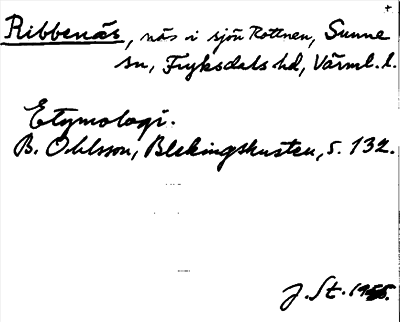 Ribbenäs, näs i sjön Rottnen, Sunne
sn, Fryksdals hd, Värml. l.
Etymologi.
B. Ohlsson, Blekingskusten, s. 132.
J. St. 1955.